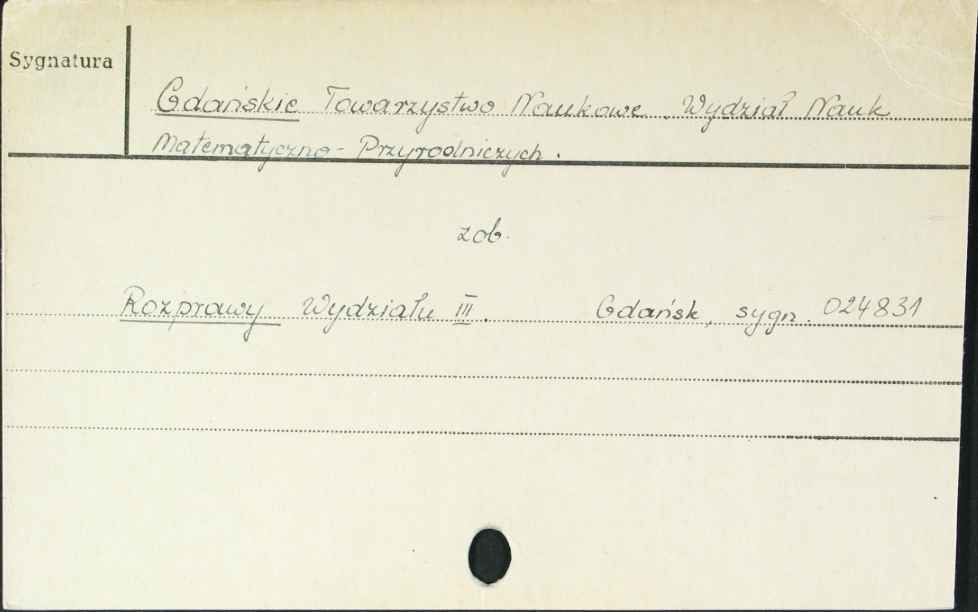 Sygnatura
Gdańskie Towarzystwo Naukowe. Wydział Nauk
Matematyczno-Przyrodniczych.
zob.
Rozprawy Wydziału III. Gdańsk, sygn. 024831